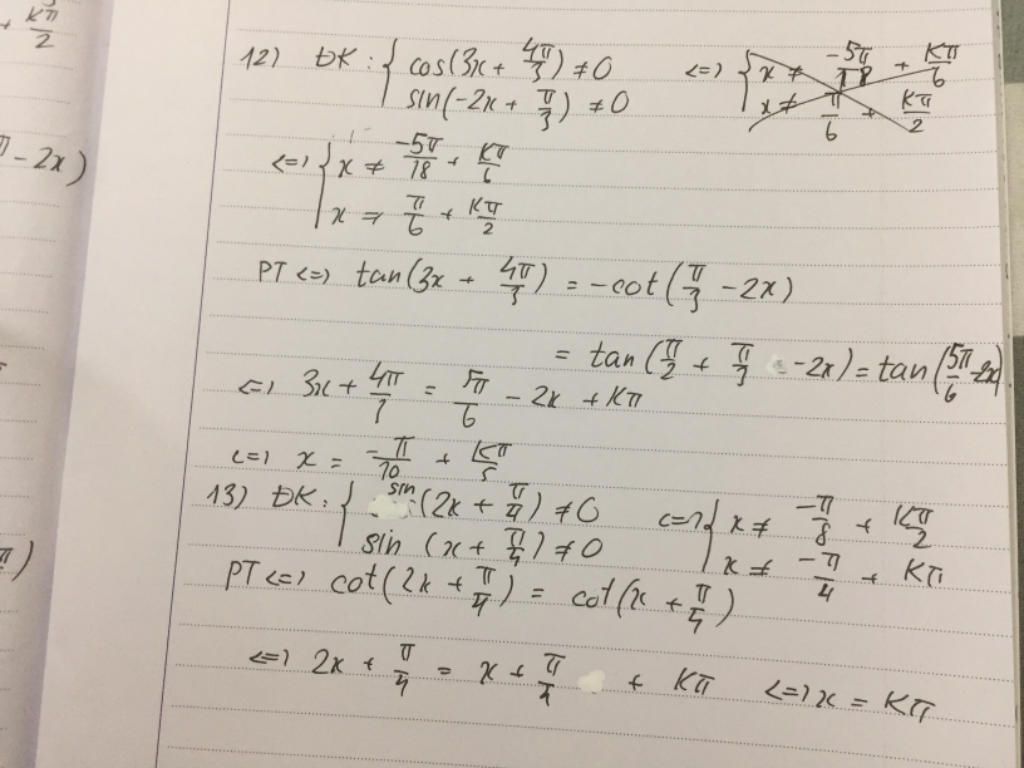 + Kπ/2
π - 2x)
π)
12) ĐK: { cos(3x + 4π/3) ≠ 0 <=> { x ≠ -5π/18 + Kπ/6
sin(-2x + π/3) ≠ 0 x ≠ π/6 + Kπ/2
<=> { x ≠ -5π/18 + Kπ/6
x ≠ π/6 + Kπ/2
PT <=> tan(3x + 4π/3) = -cot(π/3 - 2x)
= tan(π/2 + π/3 - 2x) = tan(5π/6 - 2x)
<=> 3x + 4π/3 = 5π/6 - 2x + Kπ
<=> x = -π/10 + Kπ/5
13) ĐK: { sin(2x + π/4) ≠ 0 <=> { x ≠ -π/8 + Kπ/2
sin (x + π/4) ≠ 0 x ≠ -π/4 + Kπ
PT <=> cot(2x + π/4) = cot(x + π/4)
<=> 2x + π/4 = x + π/4 + Kπ <=> x = Kπ